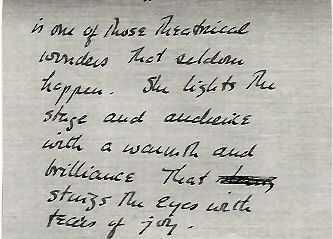 is one of those theatrical
wonders that seldom
happen. She lights the
stage and audience
with a warmth and
brilliance that
stings the eyes with
tears of joy.